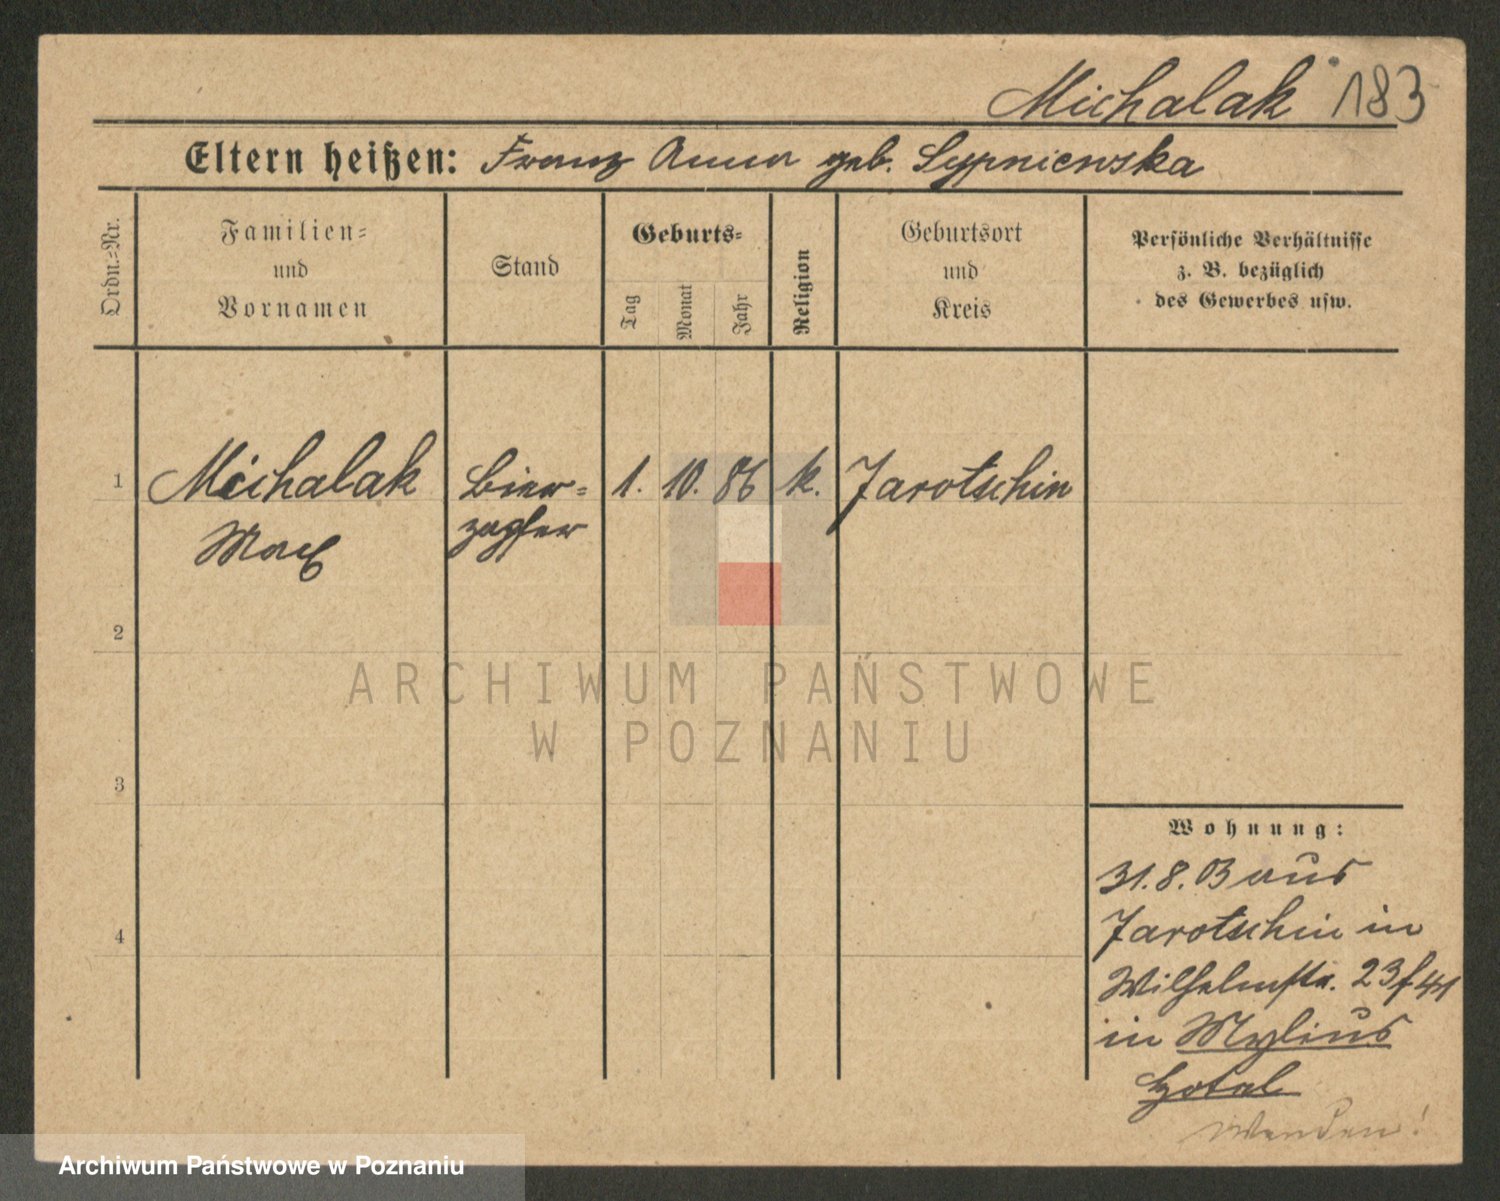 Michalak 183
Eltern heißen: Franz Anna geb. Sypniewska
Ordn.-Nr.
Familien-
und
Vornamen
Stand
Geburts-
Tag
Monat
Jahr
Religion
Geburtsort
und
Kreis
Persönliche Verhältnisse
z. B. bezüglich
des Gewerbes usw.
1 Michalak Bier- 1. 10. 86 k. Jarotschin
Max zapfer
2
3
4
Wohnung:
31.8.03 aus
Jarotschin in
Wilhelmstr. 23
in Mylius
Hotel
wenden!
ARCHIWUM PAŃSTWOWE
W POZNANIU
Archiwum Państwowe w Poznaniu